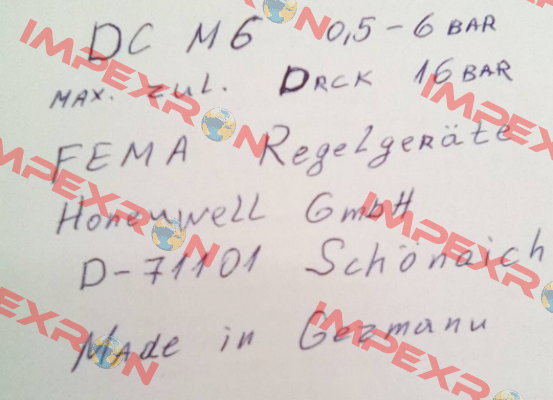 DC M6 0,5-6 BAR
MAX. ZUL. DRCK 16 BAR
FEMA Regelgeräte
Honeywell GmbH
D-71101 Schönaich
Made in Germany
IMPEXRON
IMPEXRON
IMPEXRON
IMPEXRON
IMPEXRON
IMPEXRON
IMPEXRON